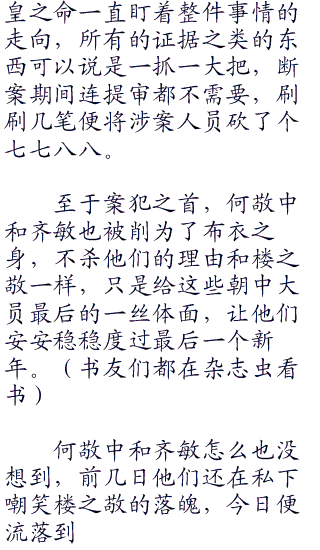 皇之命一直盯着整件事情的
走向，所有的证据之类的东
西可以说是一抓一大把，断
案期间连提审都不需要，刷
刷几笔便将涉案人员砍了个
七七八八。
至于案犯之首，何敬中
和齐敏也被削为了布衣之
身，不杀他们的理由和楼之
敬一样，只是给这些朝中大
员最后的一丝体面，让他们
安安稳稳度过最后一个新
年。（书友们都在杂志虫看
书）
何敬中和齐敏怎么也没
想到，前几日他们还在私下
嘲笑楼之敬的落魄，今日便
流落到